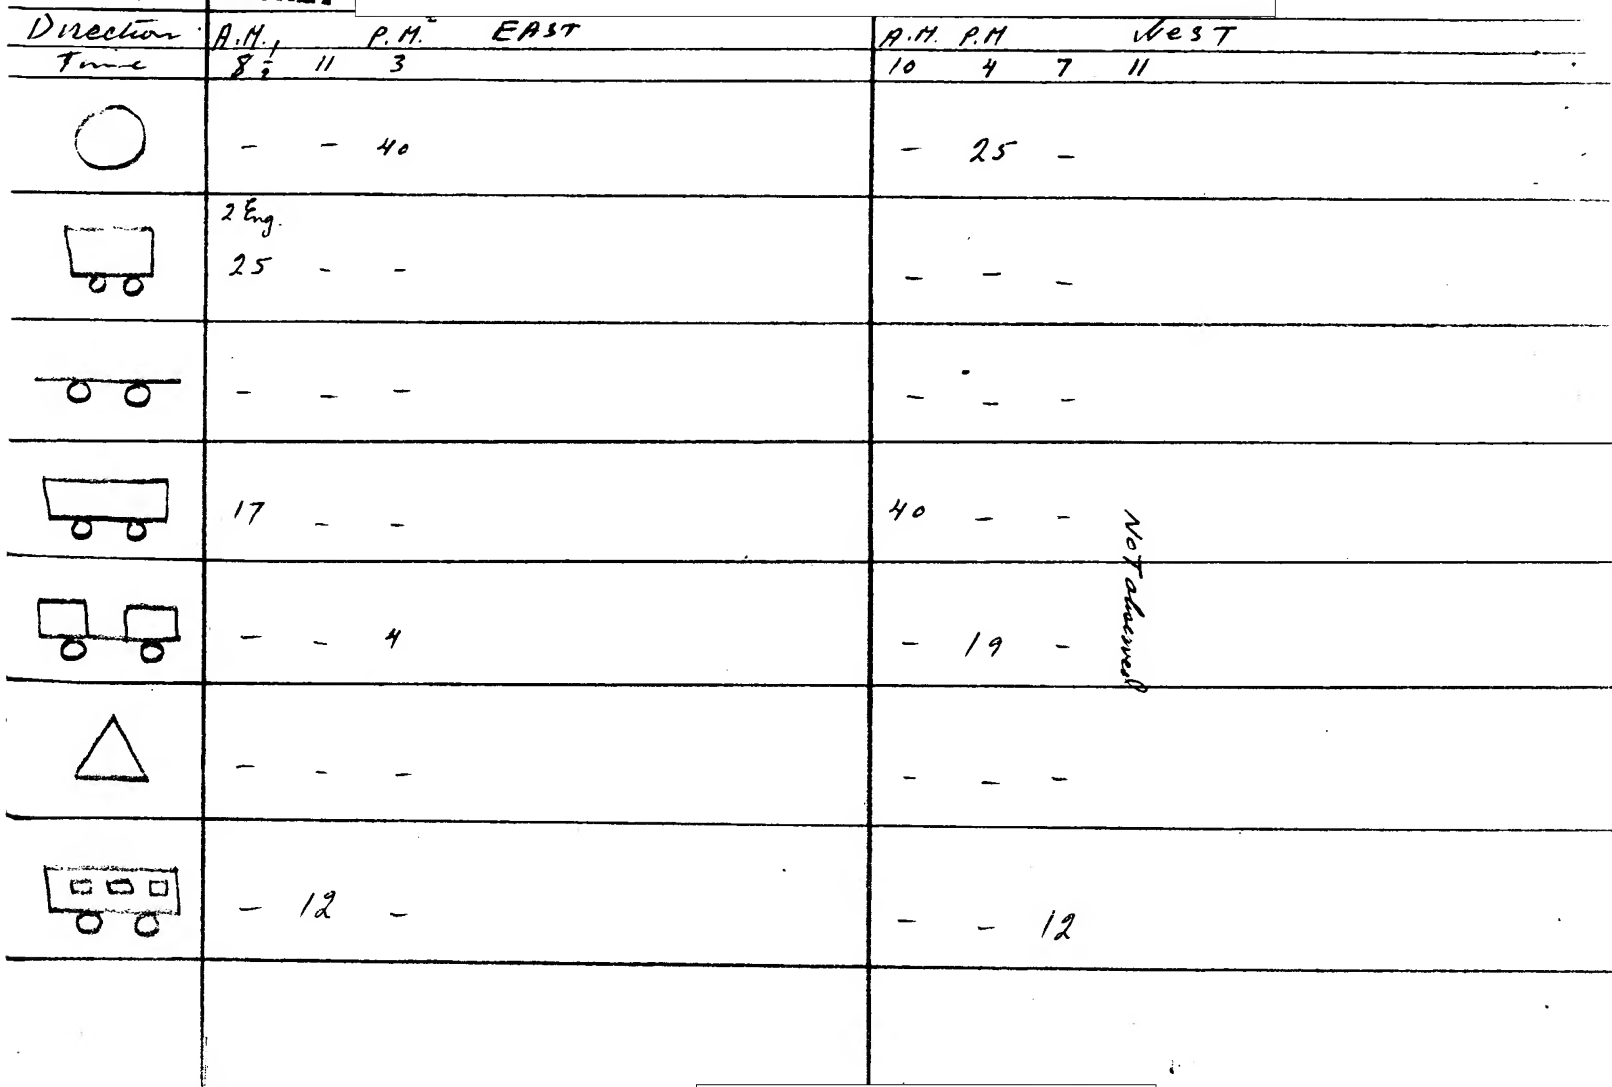 Direction A.M. P.M. EAST A.M. P.M WEST
Time 8 1/2 11 3 10 4 7 11
- - 40 - 25 -
2 Eng.
25 - - - - -
- - - - - -
17 - - 40 - -
Not observed
- - 4 - 19 -
- - - - - -
- 12 - - - 12